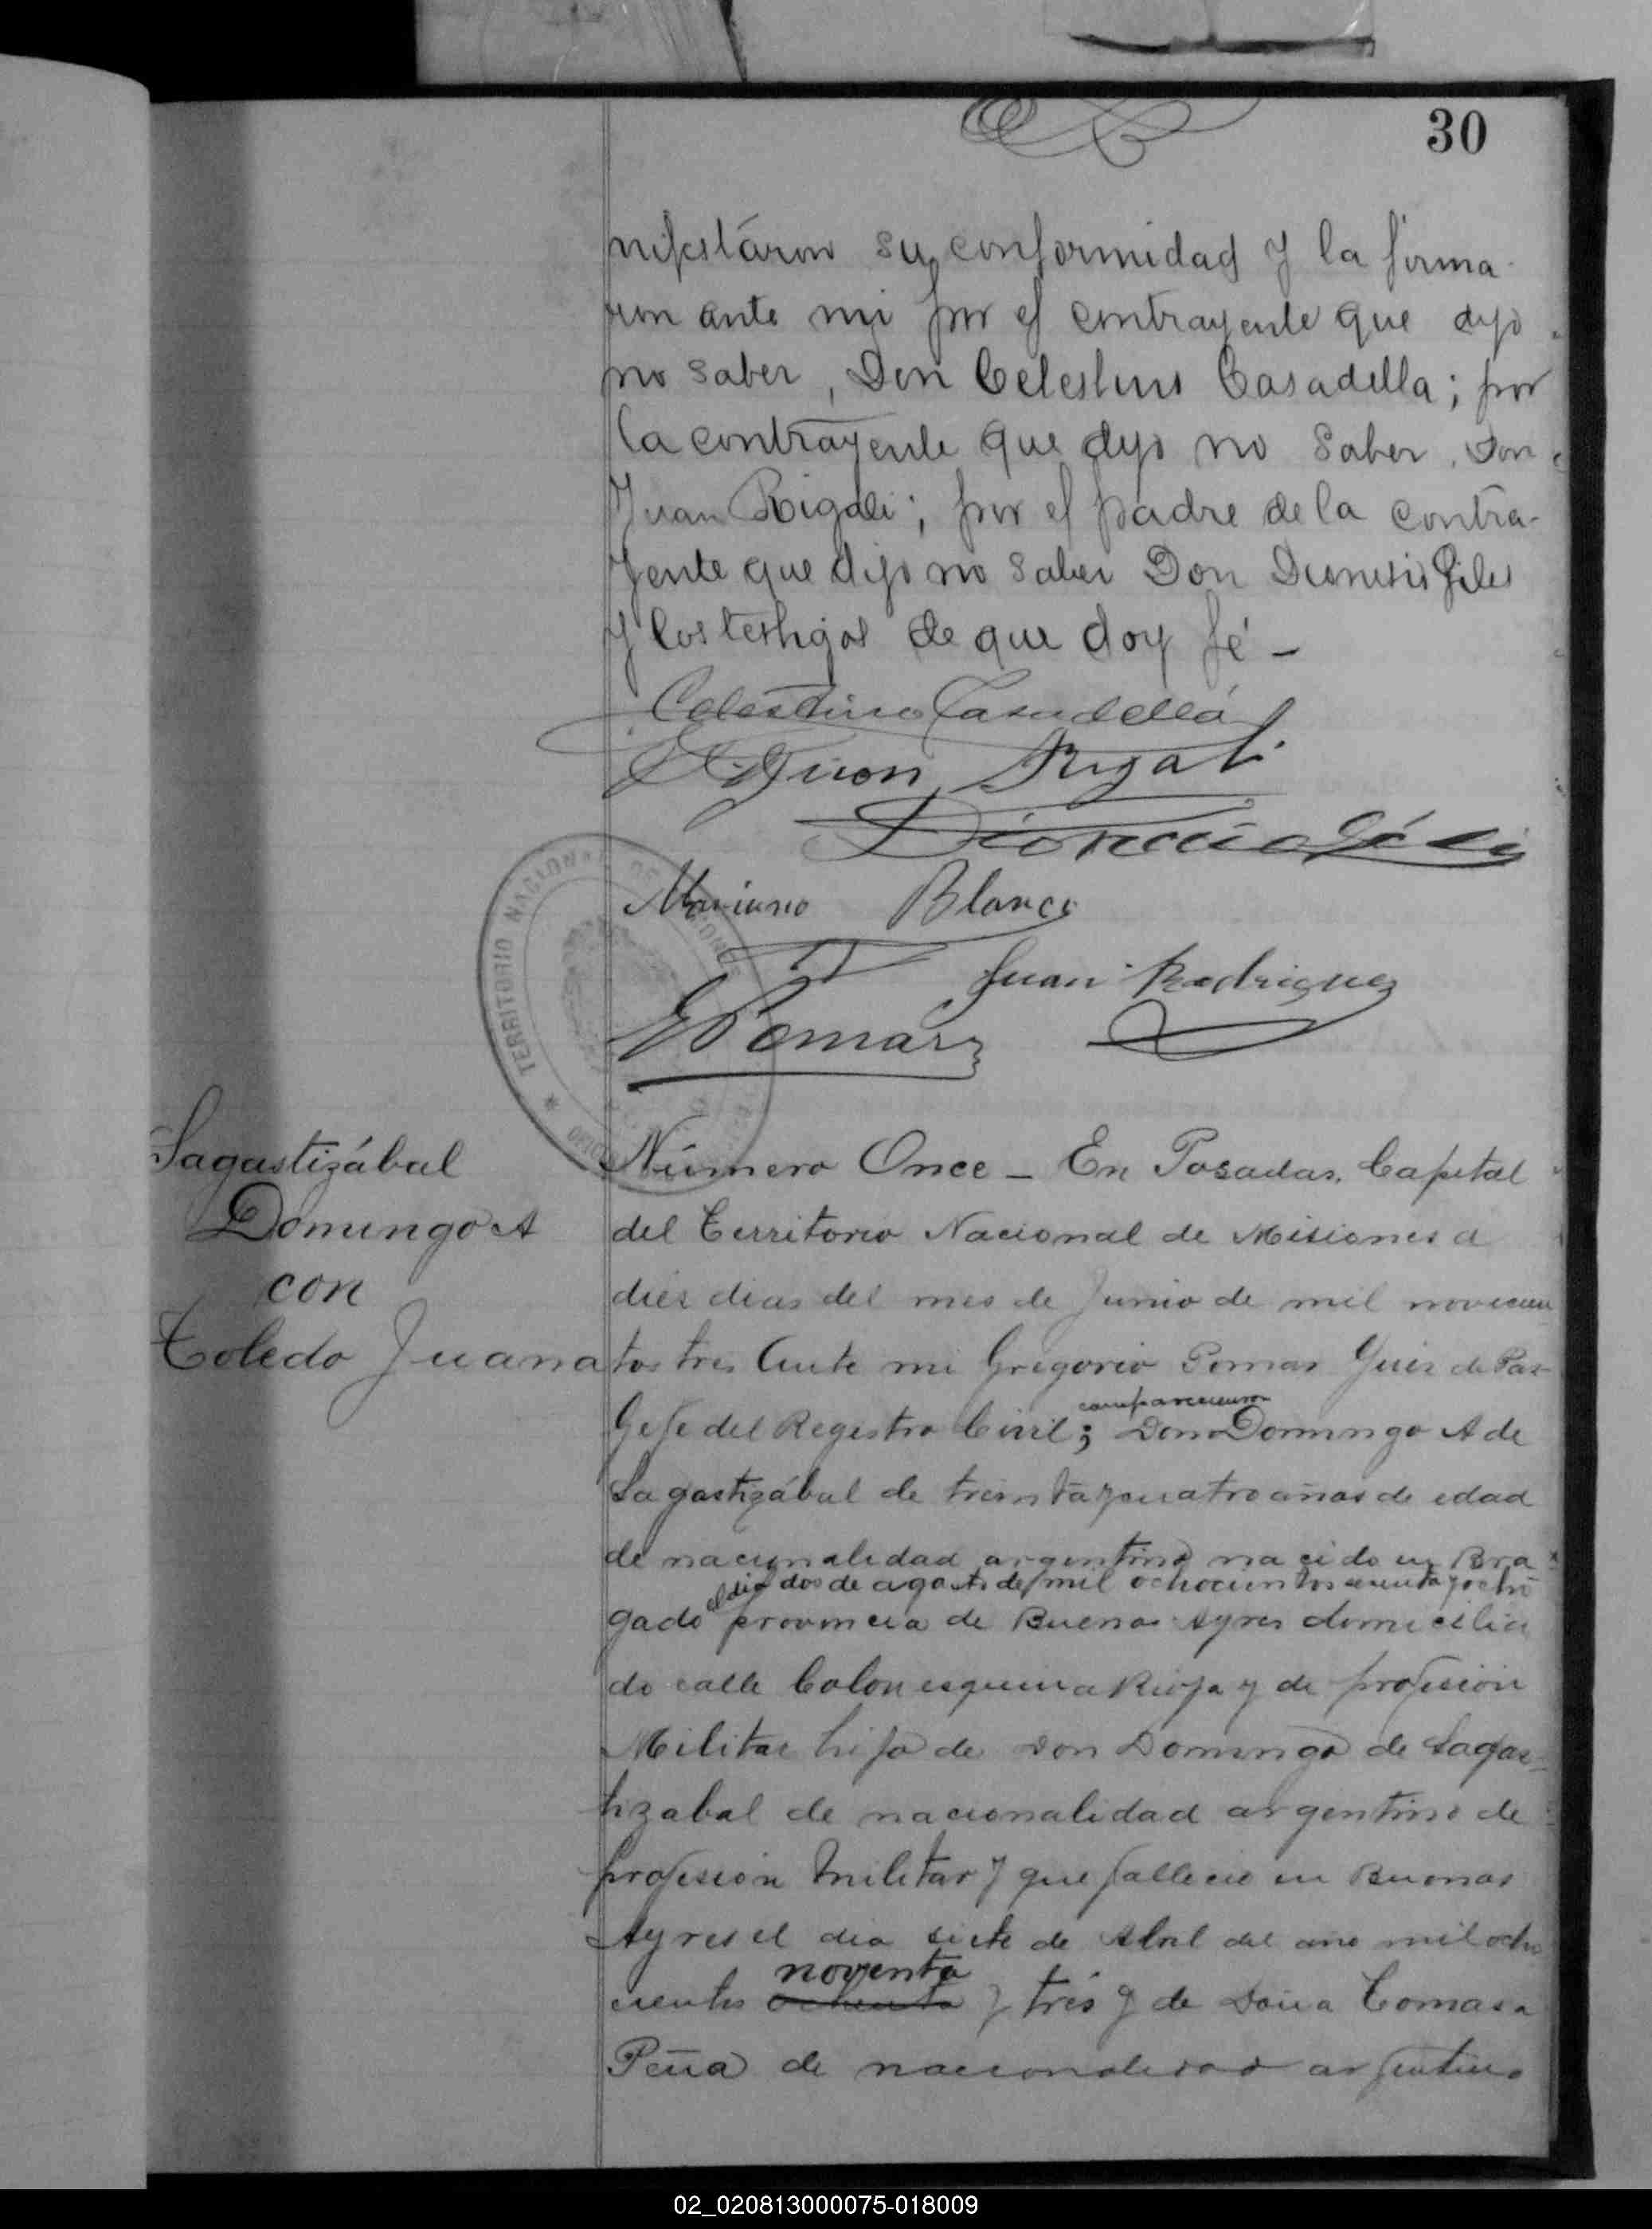 30
nifestáron su conformidad y la firma-
ron ante mi por el contrayente que dijo
no saber, Don Celestino Casadella; por
la contrayente que dijo no saber, Don
Juan Rigali; por el padre de la contra-
yente que dijo no saber Don Dionisio Giles
y los testigos de que doy fé -
Celestino Casadellá
Juan Rigali
Dionicio
Mariano Blanco
Juan Rodriguez
G Pomar
TERRITORIO NACIONAL DE MISIONES
Sagastizábal
Domingo A
con
Toledo Juana
Número Once - En Posadas, Capital
del Territorio Nacional de Misiones a
diez dias del mes de Junio de mil novecien
tos tres Ante mi Gregorio Pomar Juez de Paz
comparecieron
Gefe del Registro Civil; Don Domingo A de
Sagastizábal de treinta y cuatro años de edad
de nacionalidad argentina nacido en Bra
el dia dos de agosto de mil ochocientos sesenta y ocho
gado provincia de Buenos Ayres domicilia
do calle Colon esquina Rioja y de profesion
Militar hijo de Don Domingo de Sagas-
tizabal de nacionalidad argentino de
profesion Militar y que fallecio en Buenos
Ayres el dia siete de Abril del año mil ocho
noventa
cientos ochenta y trés y de Doña Tomasa
Peña de nacionalidad argentina
02_020813000075-018009